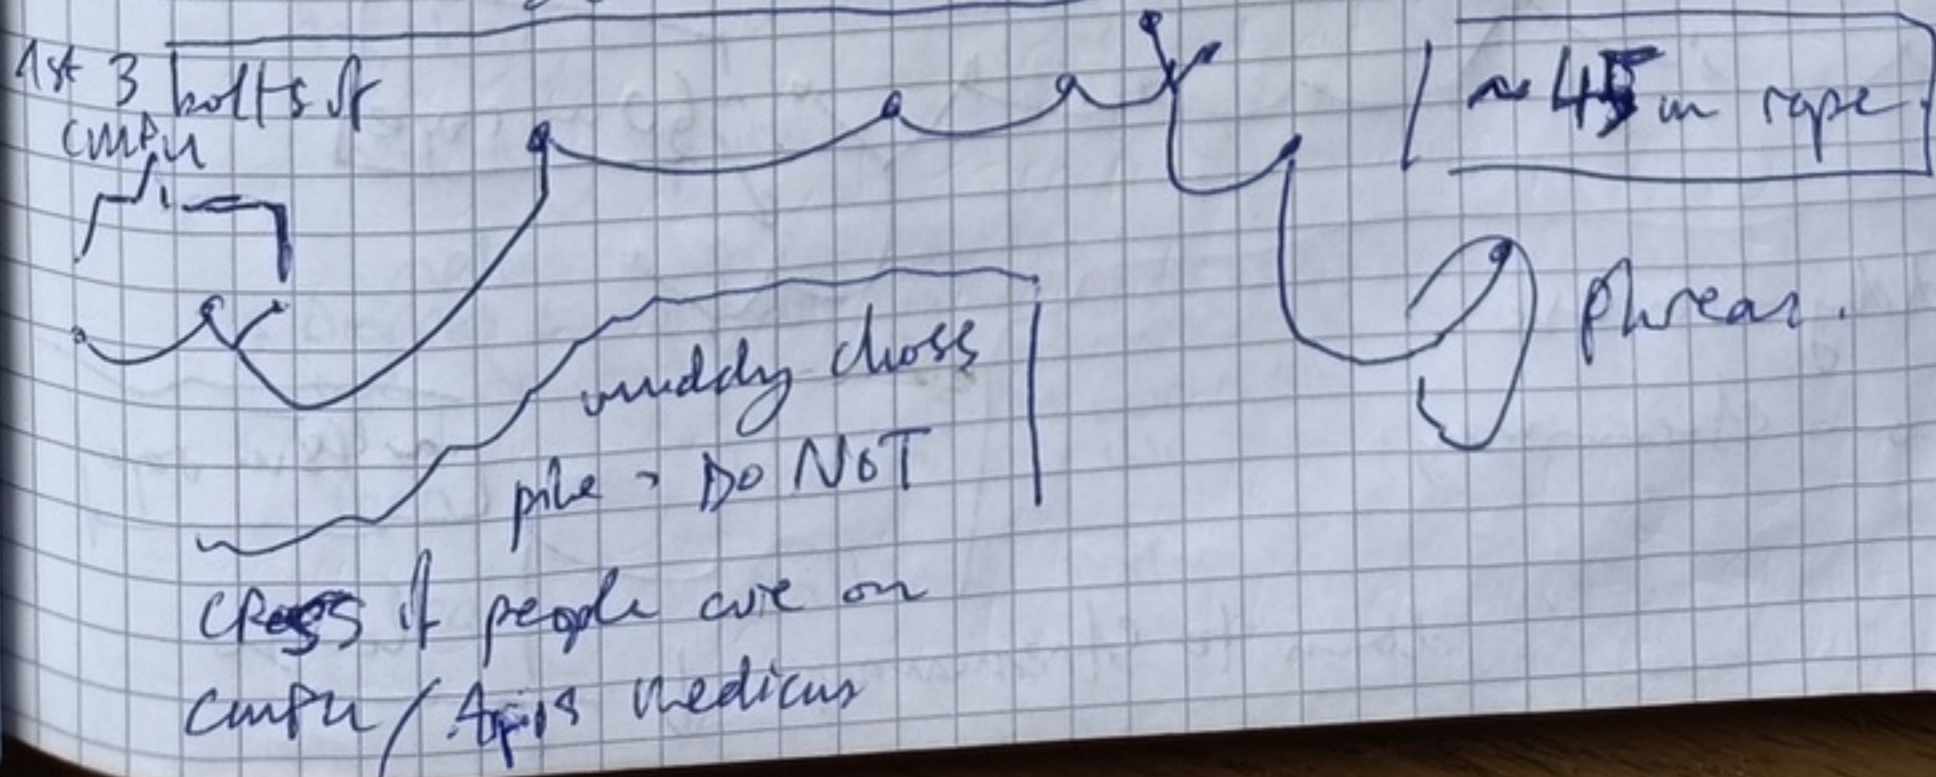 1st 3 bolts of
CMPH
~ 45 m rope
Phreas.
muddy choss
pile → DO NOT
cross if people are on
CMPH / Apis medicus